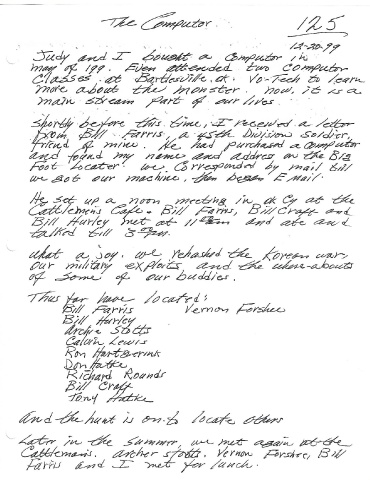 The Computor.
125
12-20-99
Judy and I bought a Computor in
may of 199. Even attended two Computor
Classes at Bartlesville, ok. Vo-Tech to learn
more about the monster. now, it is a
main stream part of our lives.
Shortly before this time, I received a letter
from Bill Farris, a 45th Division Soldier,
friend of mine. He had purchased a Computor
and found my name and address on the Big
Foot Locater. We Corresponded by mail till
we got our machine, then began E mail.
He set up a noon meeting in ok Cy at the
Cattlemens Cafe. Bill Farris, Bill Craft and
Bill Hurley met at 11 and ate and
talked till 3 pm.
What a joy. We rehashed the Korean war,
Our military exploits, and the where-abouts
of some of our buddies.
Thus far have located:
Bill Farris Vernon Forshee
Bill Hurley
Archie Stotts
Calvin Lewis
Ron Hartgerink
Don Hatke
Richard Rounds
Bill Craft
Tony Hatke
And the hunt is on to locate others
Later in the Summer, we met again at the
Cattlemans. Archer Stotts, Vernon Forshee, Bill
Farris and I met for lunch.